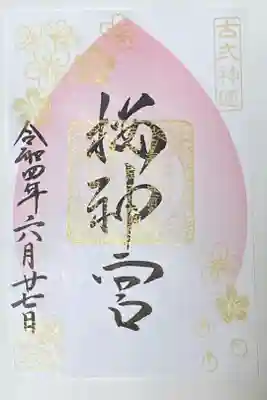 古式神道
桜神宮
令和四年六月廿七日